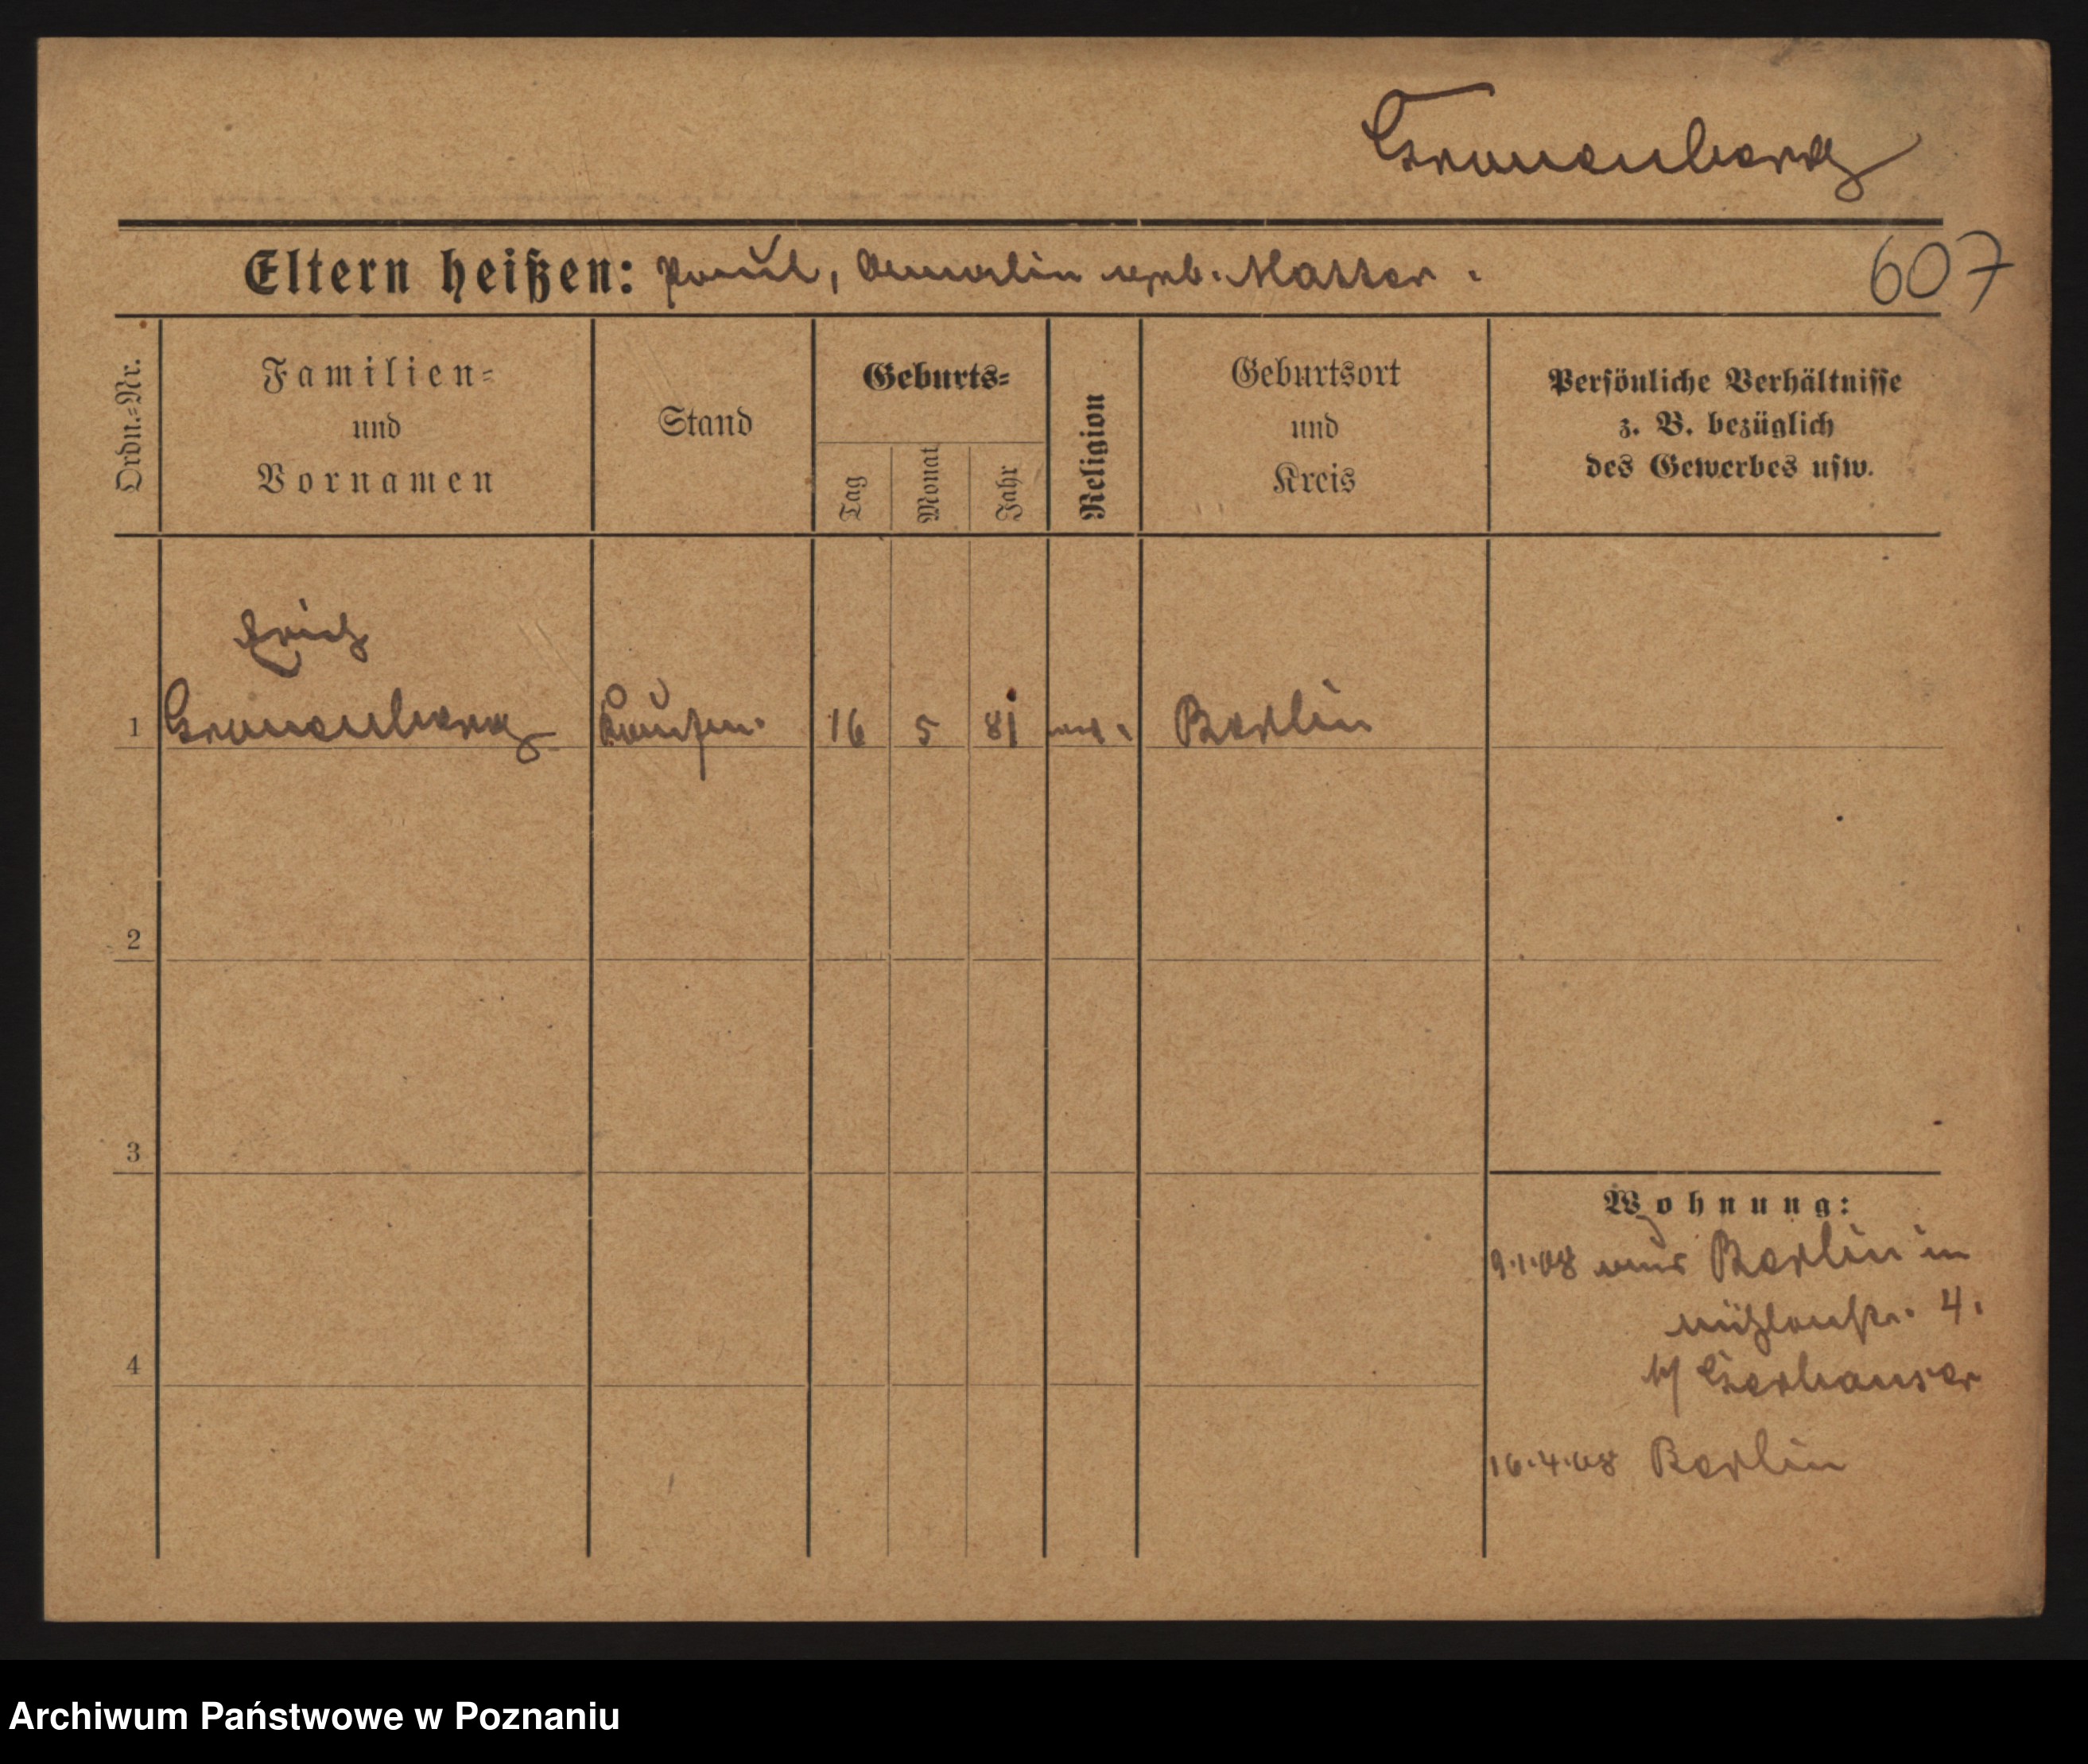 Gronenberg
Eltern heißen: Paul, Amalie geb. Matter.
607
Ordn.=Nr.
Familien=
und
Vornamen
Stand
Geburts=
Tag
Monat
Jahr
Religion
Geburtsort
und
Kreis
Persönliche Verhältnisse
z. B. bezüglich
des Gewerbes usw.
Erich
1 Gronenberg Kaufm. 16 5 81 Berlin
2
3
4
Wohnung:
9.1.08 aus Berlin in
Mühlenstr. 4.
b/
16.4.08 Berlin
Archiwum Państwowe w Poznaniu